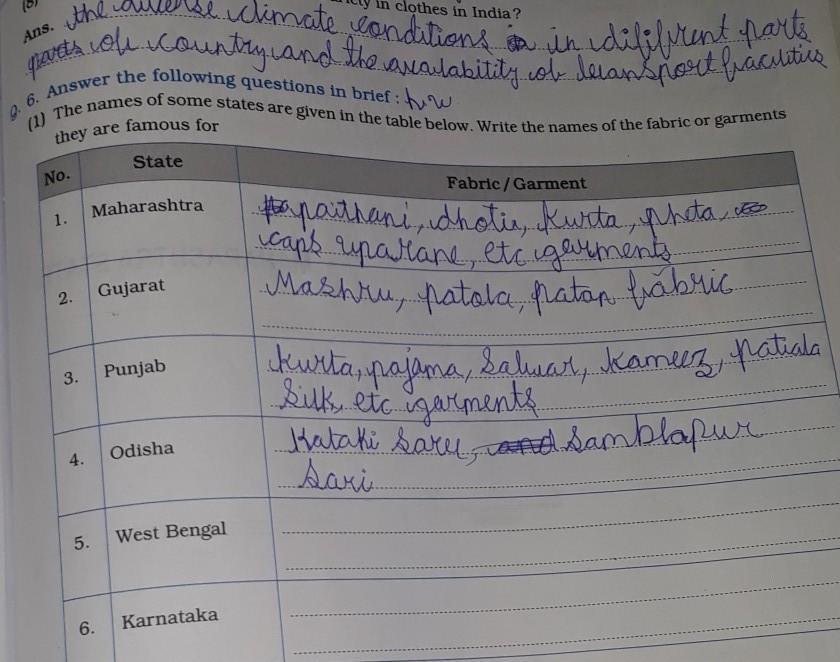 (8) in clothes in India?
Ans. the diverse climate conditions in different parts
parts of country and the availability of transport facilities
Q. 6. Answer the following questions in brief : h.w
(1) The names of some states are given in the table below. Write the names of the fabric or garments
they are famous for
No. State Fabric / Garment
1. Maharashtra paithani, dhotis, kurta, pheta,
caps uparane, etc garments
2. Gujarat Mashru, patola, patan fabric
3. Punjab Kurta, pajama, Saluar, Kameez, patiala
Silk, etc garments
4. Odisha Kataki Saree, and Samblapur
Sari
5. West Bengal
6. Karnataka